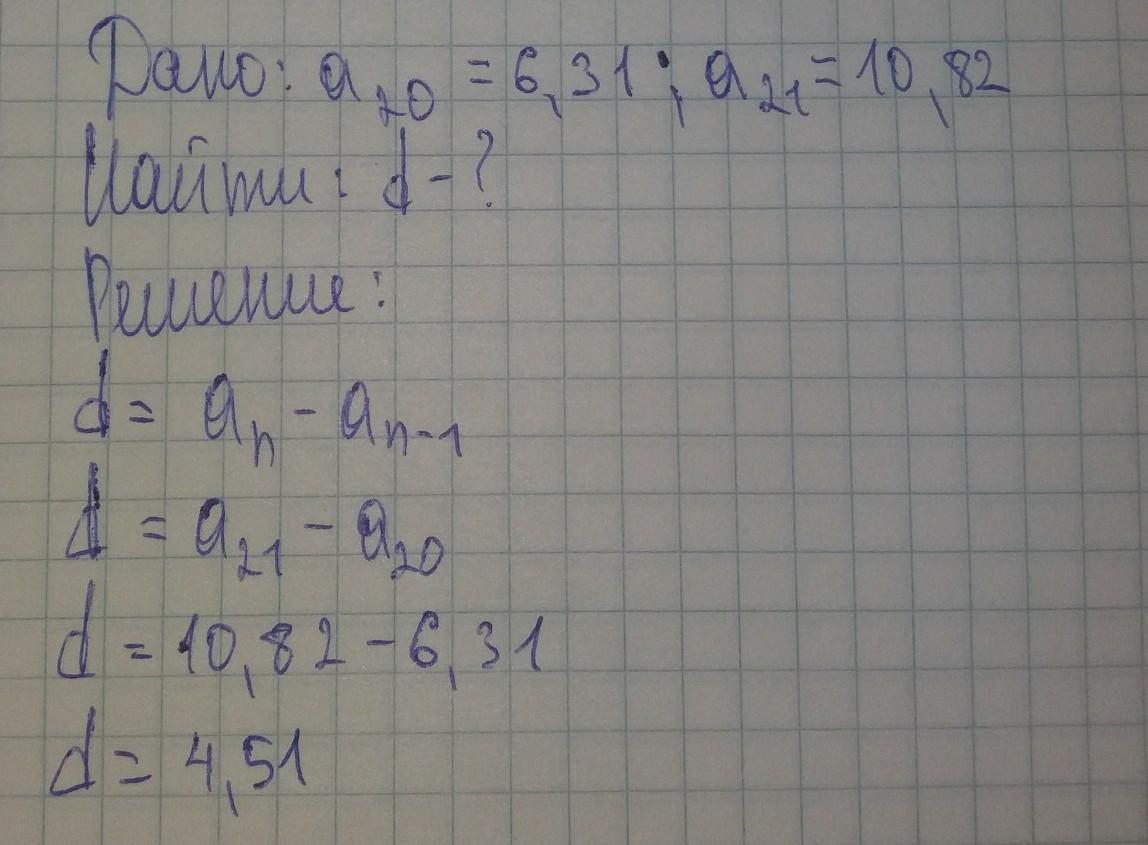 Дано: a₂₀ = 6,31; a₂₁ = 10,82
Найти: d - ?
Решение:
d = aₙ - aₙ₋₁
d = a₂₁ - a₂₀
d = 10,82 - 6,31
d = 4,51